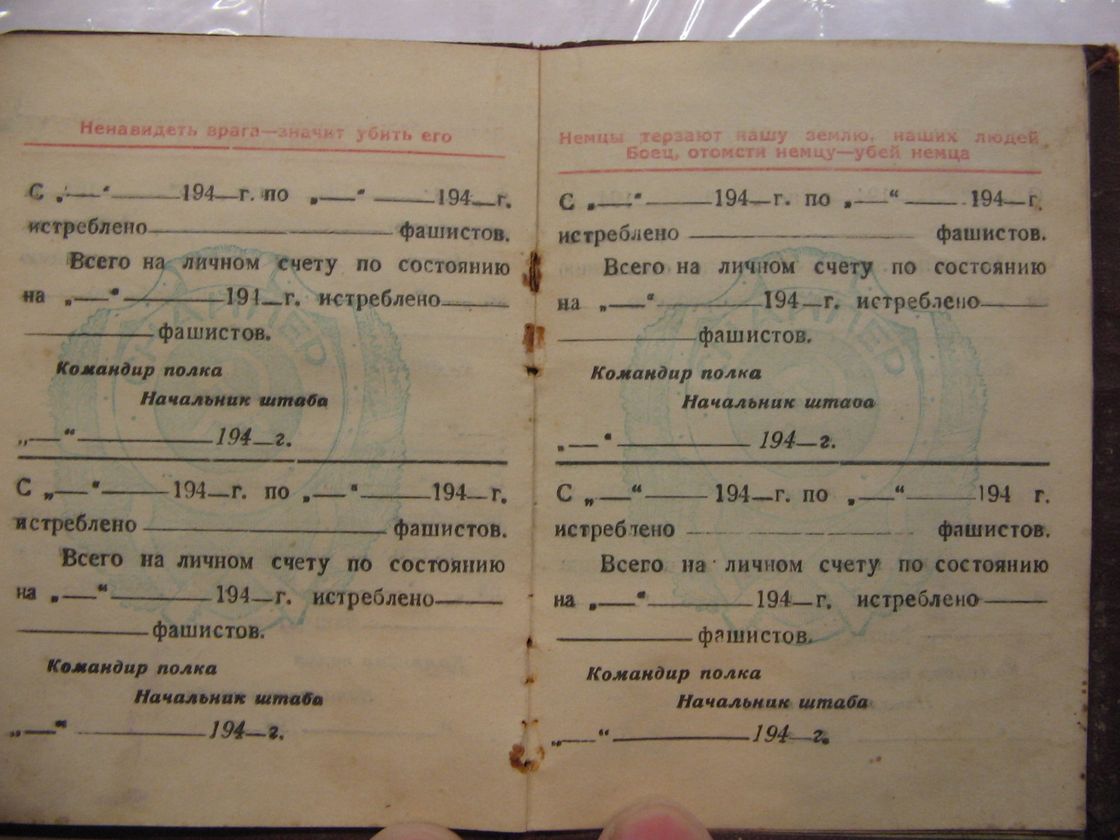 Ненавидеть врага—значит убить его
С „—“ ——— 194—г. по „—“ ——— 194—г.
истреблено ——————— фашистов.
Всего на личном счету по состоянию
на „—“ ——— 194—г. истреблено ———
——————— фашистов.
Командир полка
Начальник штаба
„—“ ——————— 194—г.
С „—“ ——— 194—г. по „—“ ——— 194—г.
истреблено ——————— фашистов.
Всего на личном счету по состоянию
на „—“ ——— 194—г. истреблено ———
——————— фашистов.
Командир полка
Начальник штаба
„—“ ——————— 194—г.
Немцы терзают нашу землю, наших людей
Боец, отомсти немцу—убей немца
С „—“ ——— 194—г. по „—“ ——— 194—г.
истреблено ——————— фашистов.
Всего на личном счету по состоянию
на „—“ ——— 194—г. истреблено ———
——————— фашистов.
Командир полка
Начальник штаба
„—“ ——————— 194—г.
С „—“ ——— 194—г. по „—“ ——— 194 г.
истреблено ——————— фашистов.
Всего на личном счету по состоянию
на „—“ ——— 194—г. истреблено ———
——————— фашистов.
Командир полка
Начальник штаба
„—“ ——————— 194—г.
СНАЙПЕР
СНАЙПЕР